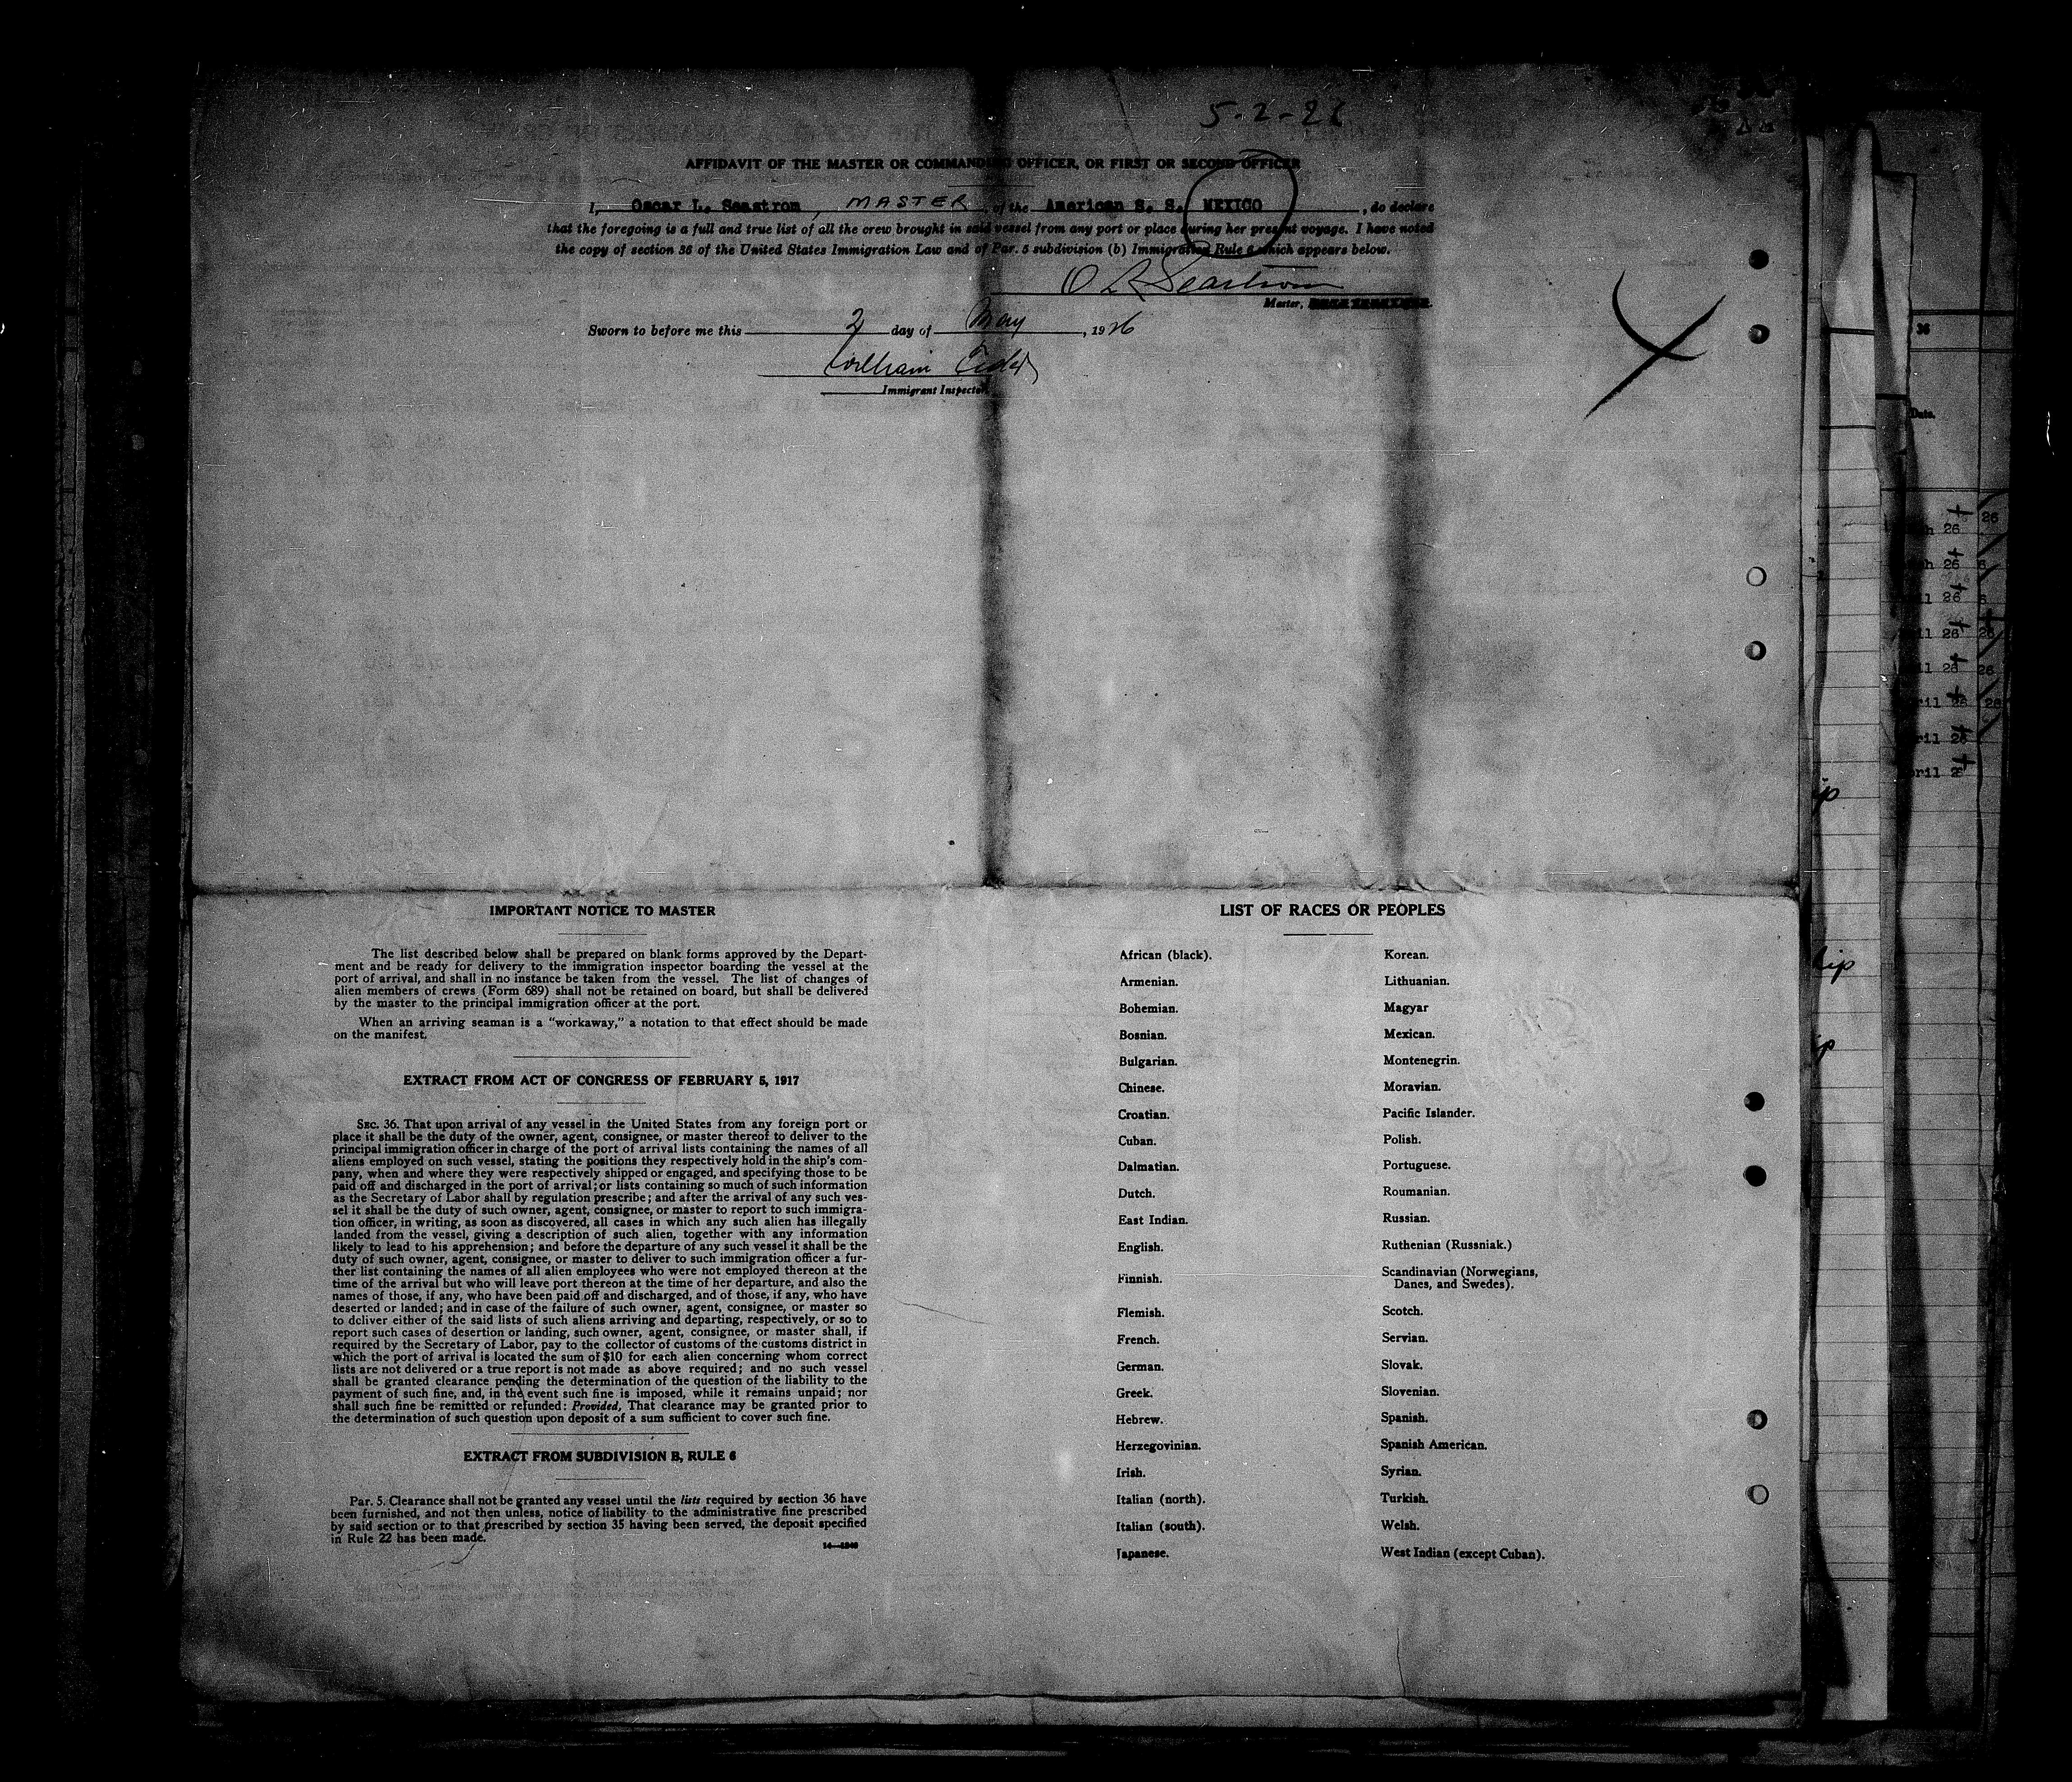 5-2-26
AFFIDAVIT OF THE MASTER OR COMMANDING OFFICER, OR FIRST OR SECOND OFFICER
I, Oscar L. Seastrom, MASTER, of the American S. S. MEXICO, do declare
that the foregoing is a full and true list of all the crew brought in said vessel from any port or place during her present voyage. I have noted
the copy of section 36 of the United States Immigration Law and of Par. 5 subdivision (b) Immigration Rule 6 which appears below.
O L Seastrom
Master,
Sworn to before me this 2 day of May, 1926
William
Immigrant Inspector.
IMPORTANT NOTICE TO MASTER
The list described below shall be prepared on blank forms approved by the Depart-
ment and be ready for delivery to the immigration inspector boarding the vessel at the
port of arrival, and shall in no instance be taken from the vessel. The list of changes of
alien members of crews (Form 689) shall not be retained on board, but shall be delivered
by the master to the principal immigration officer at the port.
When an arriving seaman is a "workaway," a notation to that effect should be made
on the manifest.
EXTRACT FROM ACT OF CONGRESS OF FEBRUARY 5, 1917
SEC. 36. That upon arrival of any vessel in the United States from any foreign port or
place it shall be the duty of the owner, agent, consignee, or master thereof to deliver to the
principal immigration officer in charge of the port of arrival lists containing the names of all
aliens employed on such vessel, stating the positions they respectively hold in the ship's com-
pany, when and where they were respectively shipped or engaged, and specifying those to be
paid off and discharged in the port of arrival; or lists containing so much of such information
as the Secretary of Labor shall by regulation prescribe; and after the arrival of any such ves-
sel it shall be the duty of such owner, agent, consignee, or master to report to such immigra-
tion officer, in writing, as soon as discovered, all cases in which any such alien has illegally
landed from the vessel, giving a description of such alien, together with any information
likely to lead to his apprehension; and before the departure of any such vessel it shall be the
duty of such owner, agent, consignee, or master to deliver to such immigration officer a fur-
ther list containing the names of all alien employees who were not employed thereon at the
time of the arrival but who will leave port thereon at the time of her departure, and also the
names of those, if any, who have been paid off and discharged, and of those, if any, who have
deserted or landed; and in case of the failure of such owner, agent, consignee, or master so
to deliver either of the said lists of such aliens arriving and departing, respectively, or so to
report such cases of desertion or landing, such owner, agent, consignee, or master shall, if
required by the Secretary of Labor, pay to the collector of customs of the customs district in
which the port of arrival is located the sum of $10 for each alien concerning whom correct
lists are not delivered or a true report is not made as above required; and no such vessel
shall be granted clearance pending the determination of the question of the liability to the
payment of such fine, and, in the event such fine is imposed, while it remains unpaid; nor
shall such fine be remitted or refunded: Provided, That clearance may be granted prior to
the determination of such question upon deposit of a sum sufficient to cover such fine.
EXTRACT FROM SUBDIVISION B, RULE 6
Par. 5. Clearance shall not be granted any vessel until the lists required by section 36 have
been furnished, and not then unless, notice of liability to the administrative fine prescribed
by said section or to that prescribed by section 35 having been served, the deposit specified
in Rule 22 has been made.
LIST OF RACES OR PEOPLES
African (black).
Armenian.
Bohemian.
Bosnian.
Bulgarian.
Chinese.
Croatian.
Cuban.
Dalmatian.
Dutch.
East Indian.
English.
Finnish.
Flemish.
French.
German.
Greek.
Hebrew.
Herzegovinian.
Irish.
Italian (north).
Italian (south).
Japanese.
Korean.
Lithuanian.
Magyar
Mexican.
Montenegrin.
Moravian.
Pacific Islander.
Polish.
Portuguese.
Roumanian.
Russian.
Ruthenian (Russniak.)
Scandinavian (Norwegians,
Danes, and Swedes).
Scotch.
Servian.
Slovak.
Slovenian.
Spanish.
Spanish American.
Syrian.
Turkish.
Welsh.
West Indian (except Cuban).
36
Date.